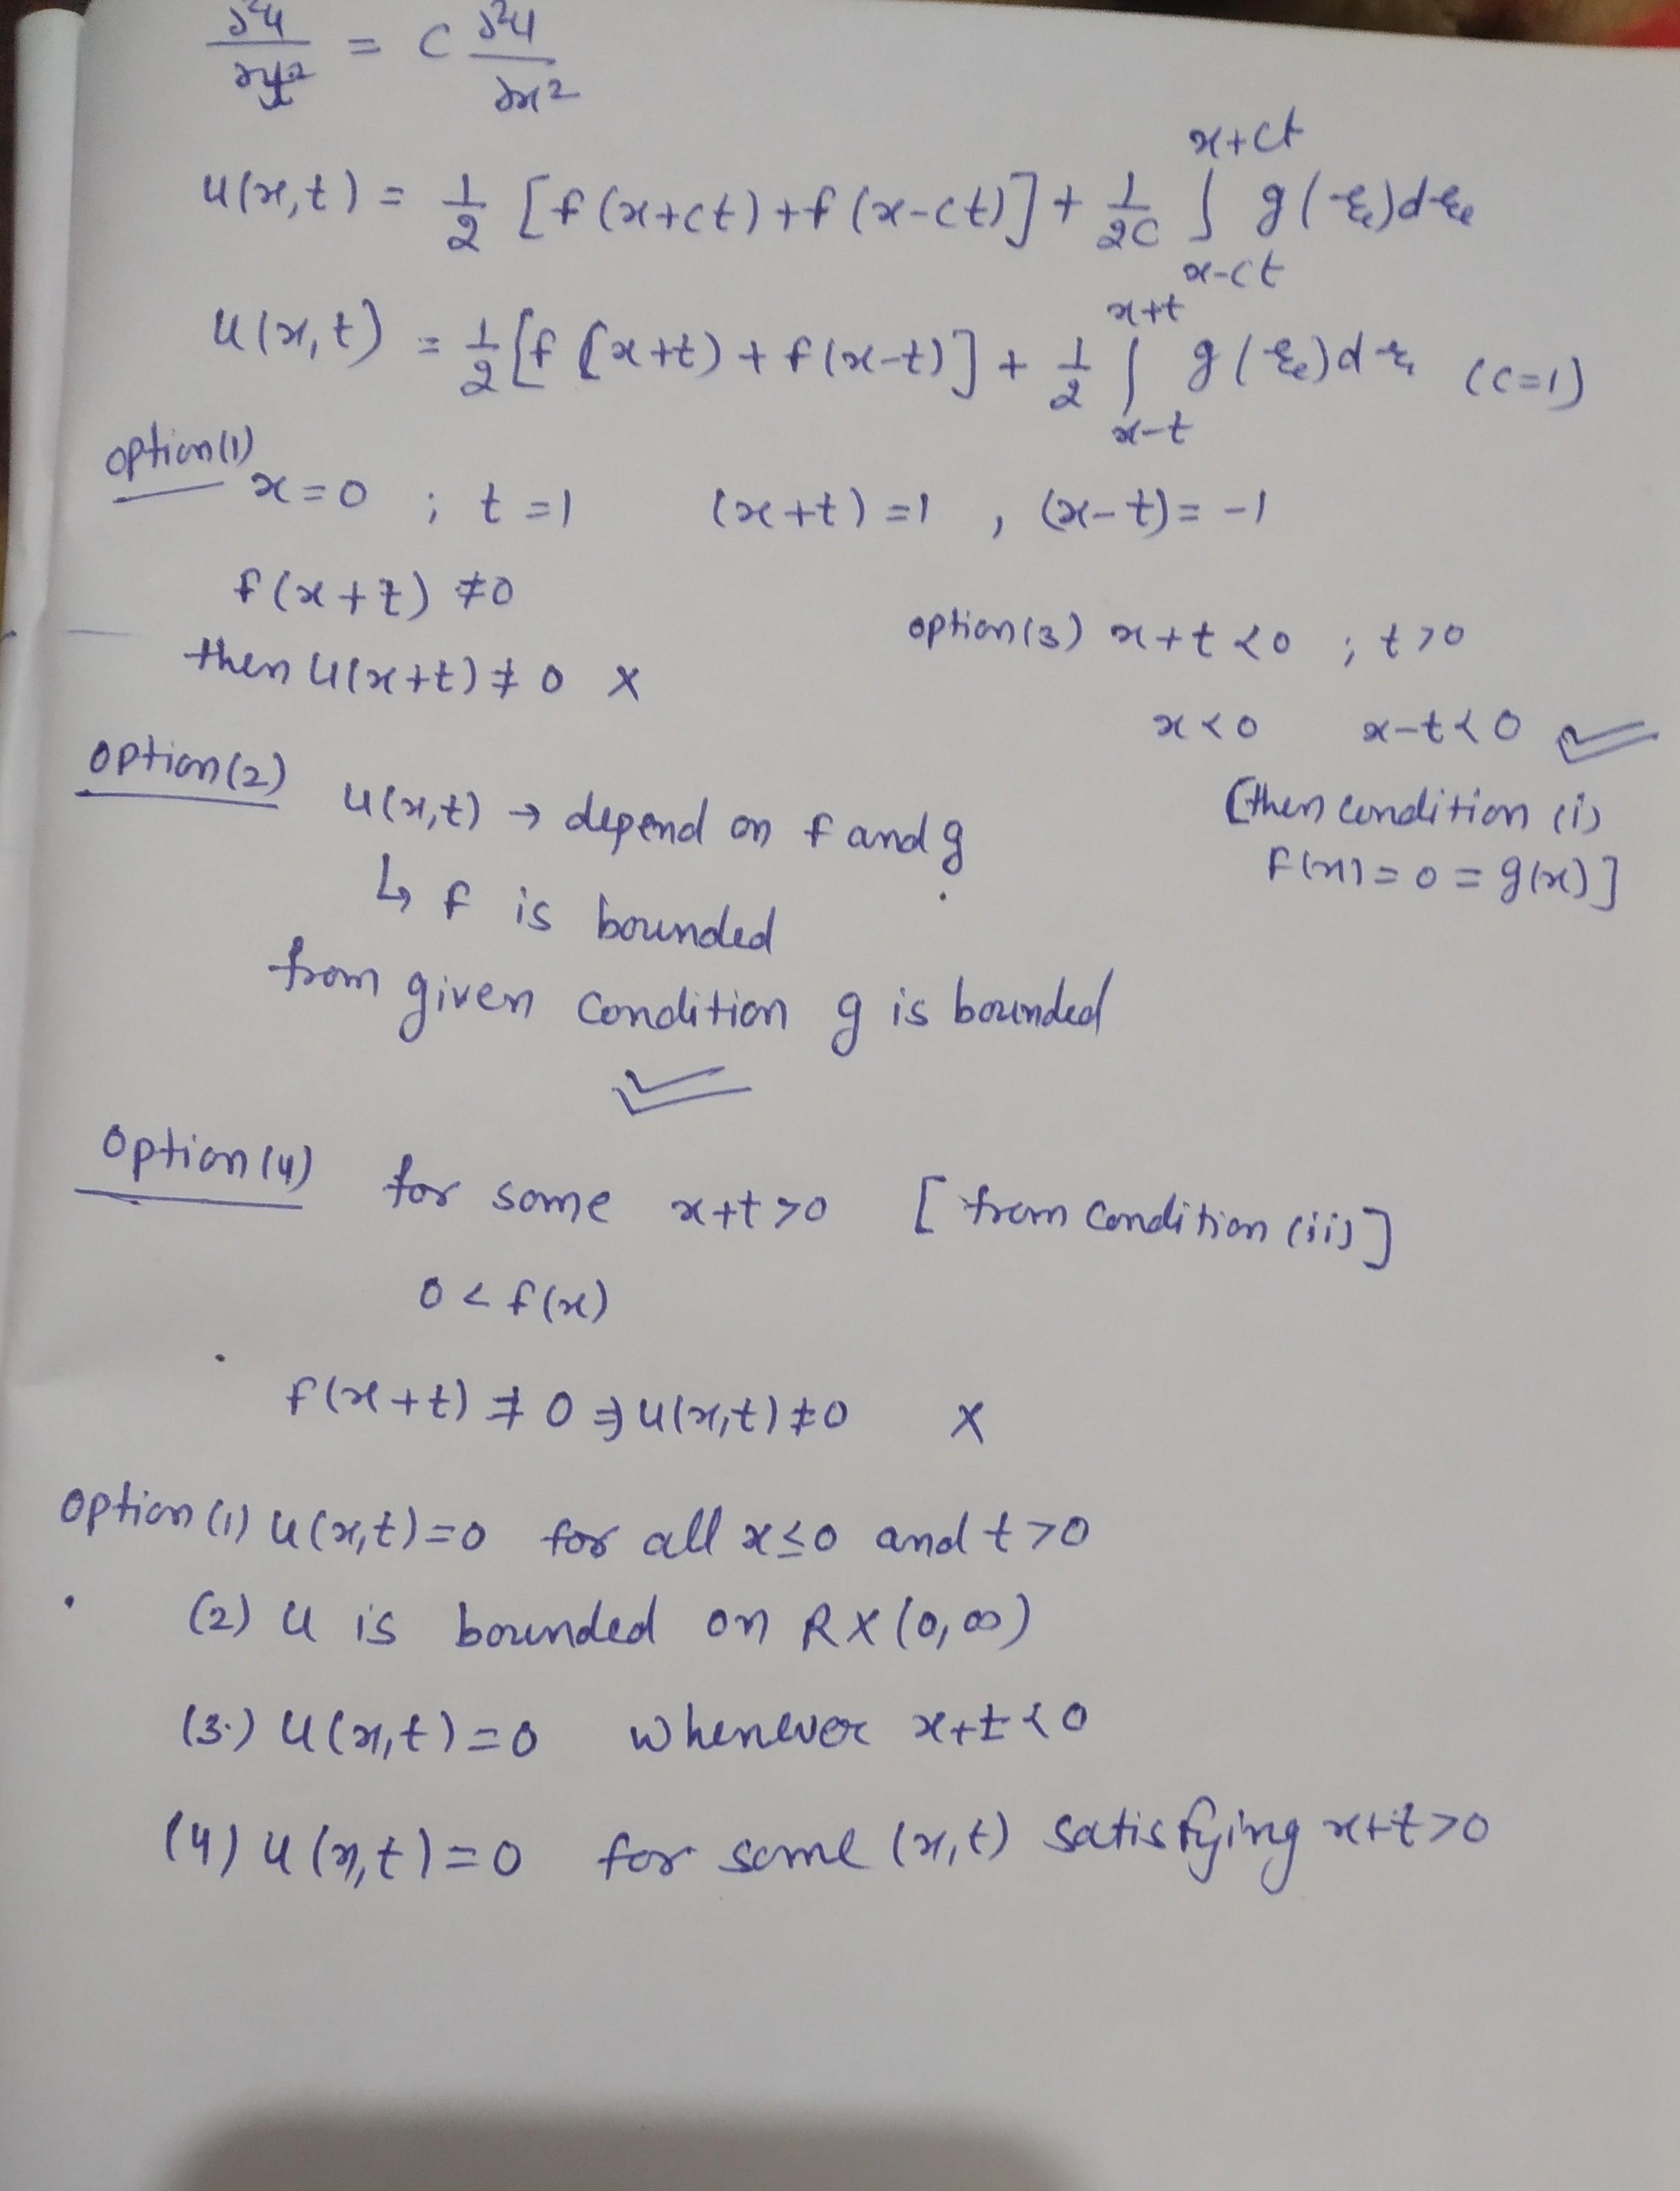 ∂²u/∂y² = C ∂²u/∂x²
u(x,t) = 1/2 [f(x+ct)+f(x-ct)] + 1/2C ∫_{x-ct}^{x+ct} g(ξ)dξ
u(x,t) = 1/2 [f(x+t) + f(x-t)] + 1/2 ∫_{x-t}^{x+t} g(ξ)dξ (c=1)
option(1)
x=0 ; t=1 (x+t)=1 , (x-t)=-1
f(x+t) ≠0
then u(x+t) ≠ 0 ×
option(3) x+t<0 ; t>0
x<0 x-t<0 ✓
[then condition (i)
f(x)=0=g(x)]
option(2)
u(x,t) → depend on f and g
↳ f is bounded
from given condition g is bounded
✓
option(4) for some x+t>0 [from condition (ii)]
0 < f(x)
f(x+t) ≠ 0 ⇒ u(x,t) ≠0 ×
option (1) u(x,t)=0 for all x≤0 and t>0
(2) u is bounded on R×(0,∞)
(3.) u(x,t)=0 whenever x+t<0
(4) u(x,t)=0 for some (x,t) satisfying x+t>0